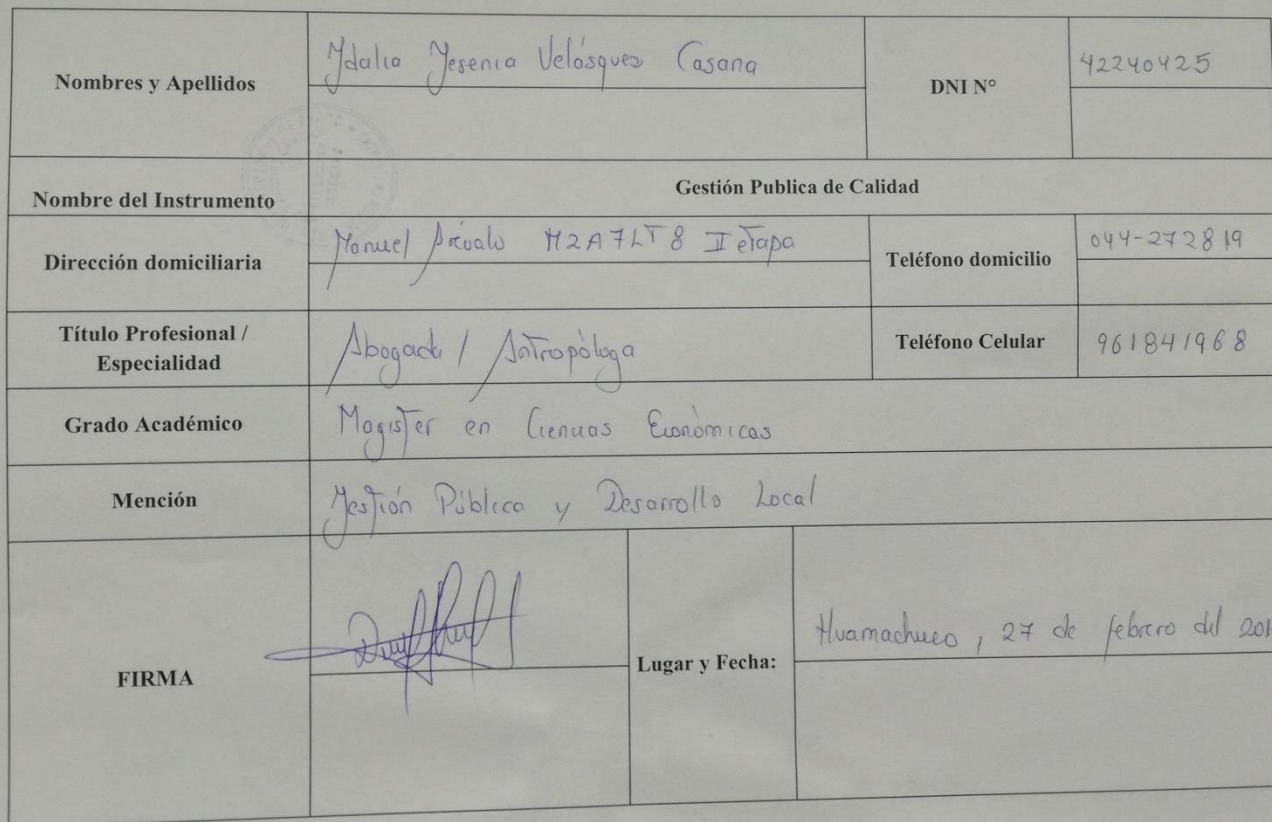 Nombres y Apellidos
Ydalia Yesenia Velásquez Casana
DNI N°
42240425
Nombre del Instrumento
Gestión Publica de Calidad
Dirección domiciliaria
Manuel Arévalo MZ A7 LT 8 II etapa
Teléfono domicilio
044-272819
Título Profesional /
Especialidad
Abogada / Antropóloga
Teléfono Celular
961841968
Grado Académico
Magister en Ciencias Económicas
Mención
Gestión Pública y Desarrollo Local
FIRMA
Lugar y Fecha:
Huamachuco, 27 de febrero del 201